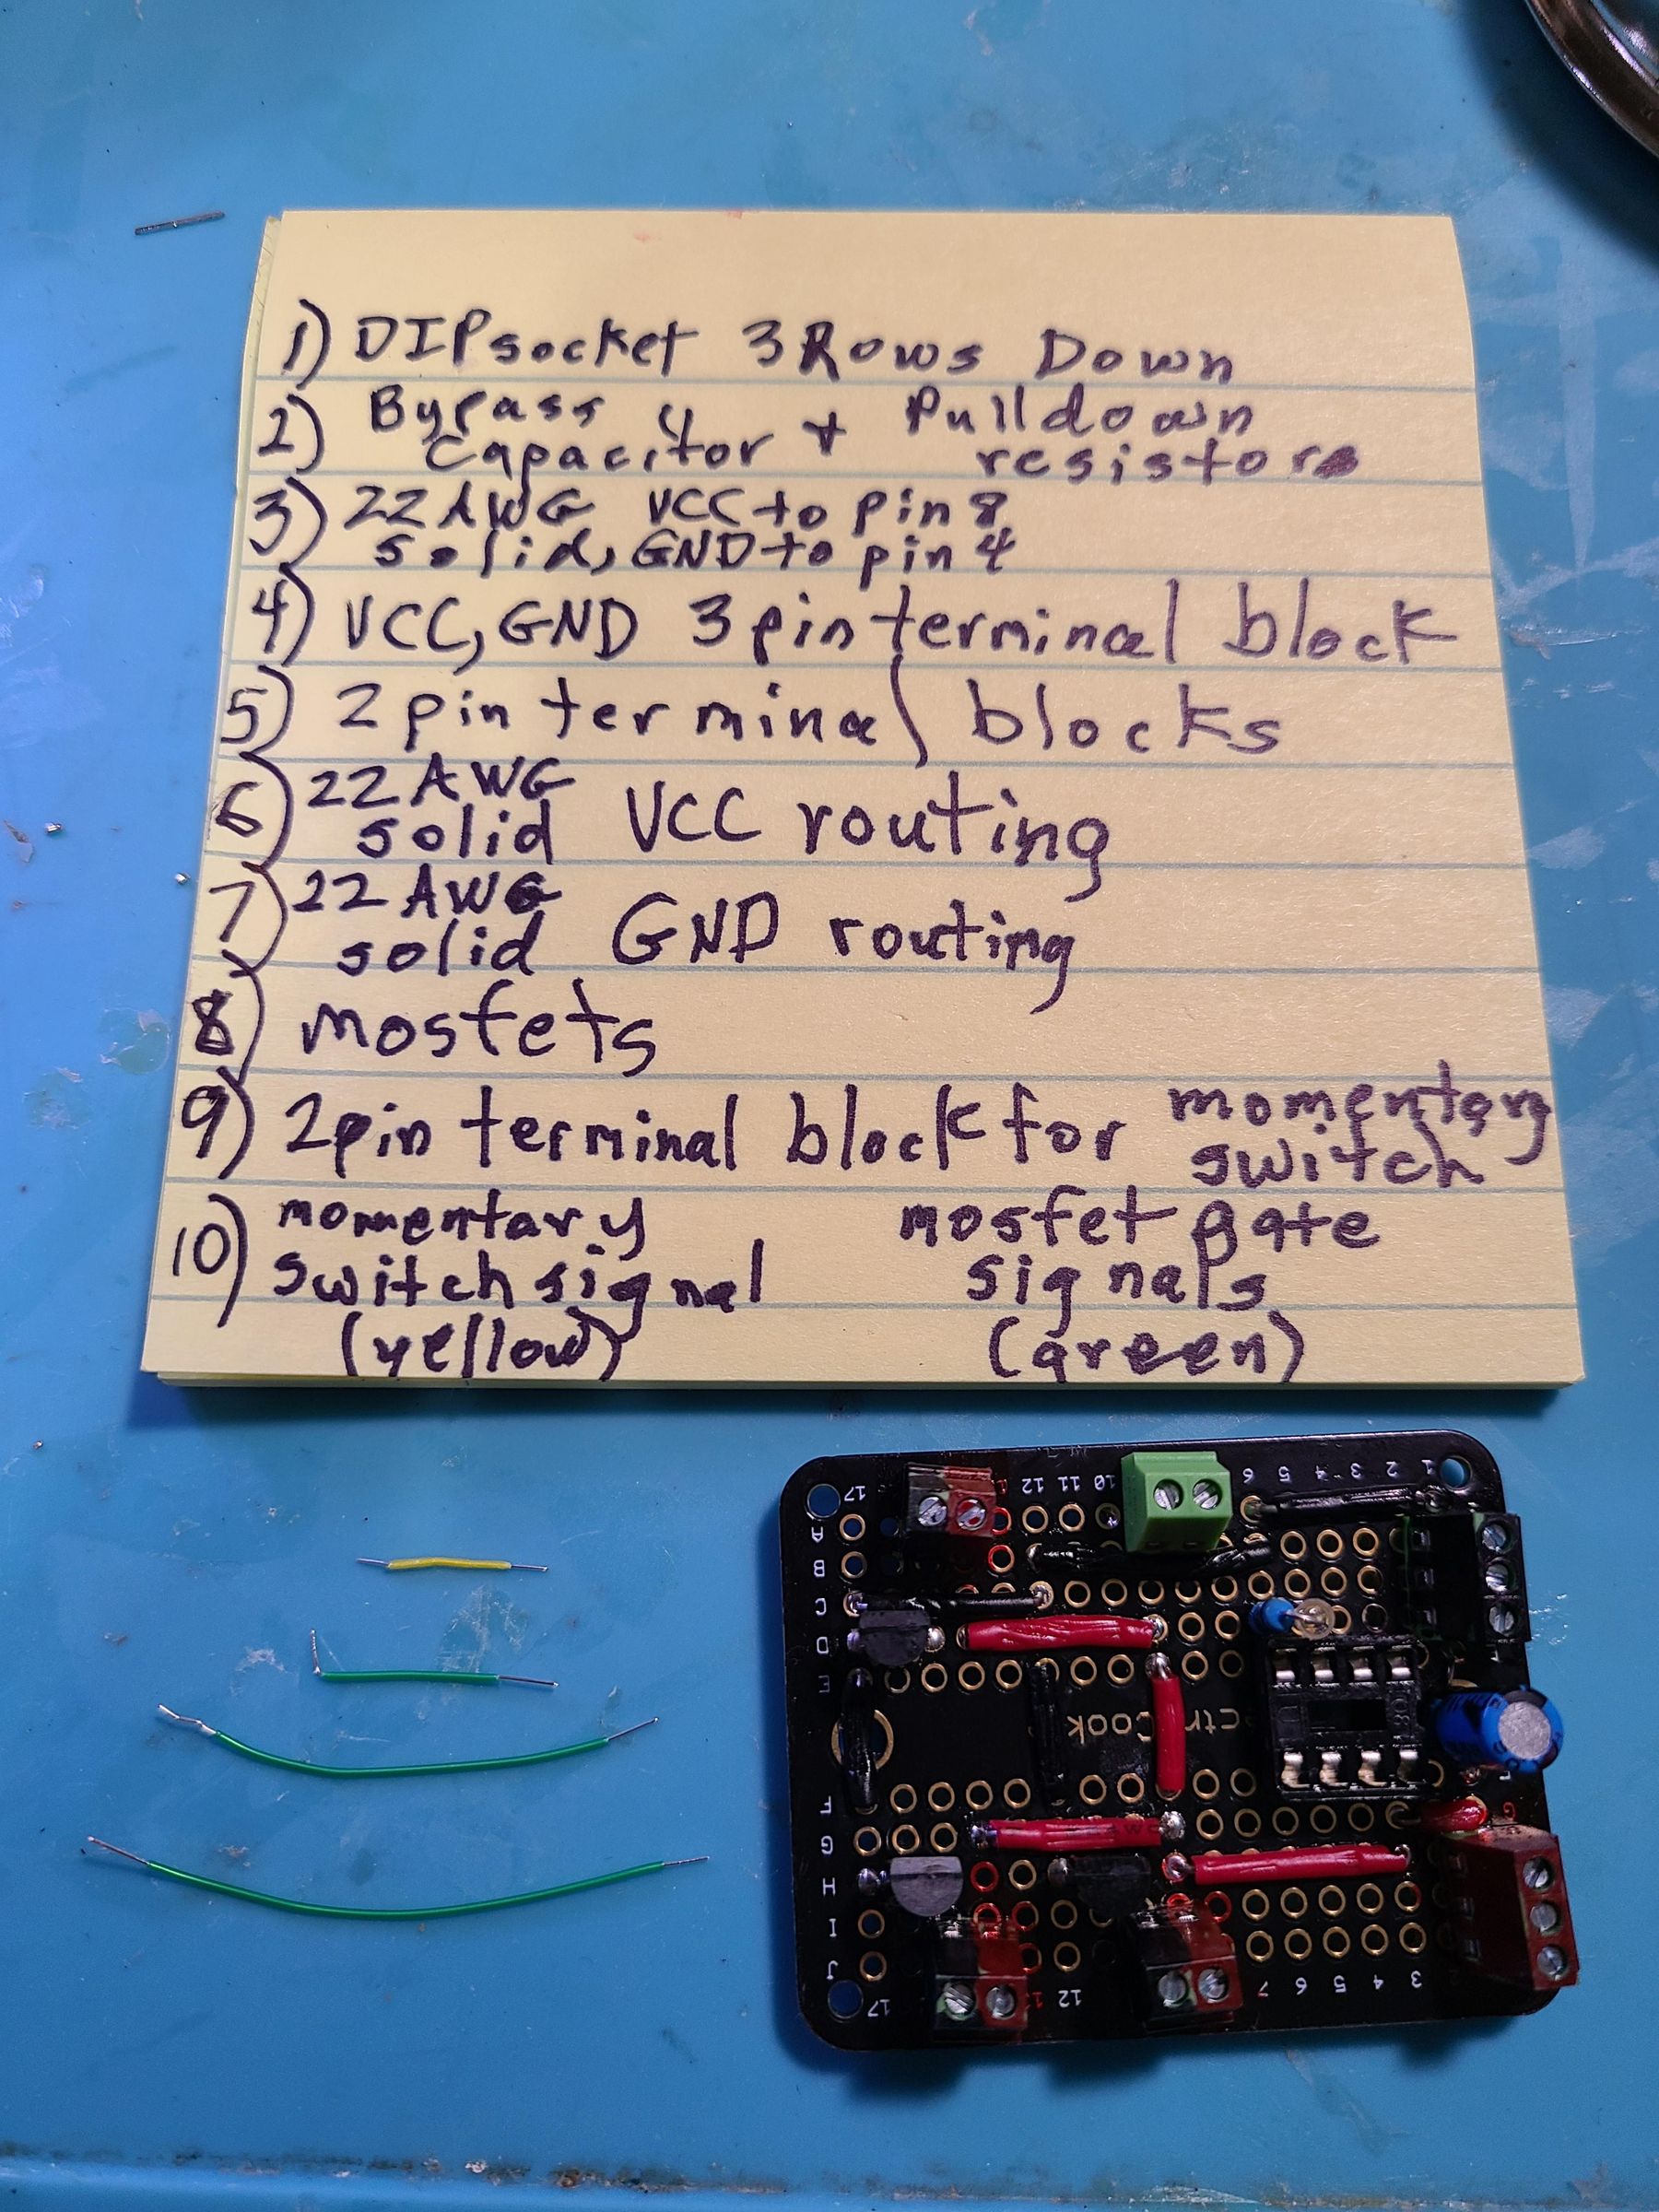 1) DIP socket 3 Rows Down
2) Bypass Capacitor & Pulldown resistors
3) 22 AWG VCC to pin 8
solid, GND to pin 4
4) VCC, GND 3 pin terminal block
5) 2 pin terminal blocks
6) 22 AWG solid VCC routing
7) 22 AWG solid GND routing
8) mosfets
9) 2 pin terminal block for momentary switch
10) momentary switch signal (yellow)
mosfet gate signals (green)
17 12 11 10 6 5 4 3 2 1
A
B
C
D
E
Cook
F
G
H
I
J
17 12 7 6 5 4 3